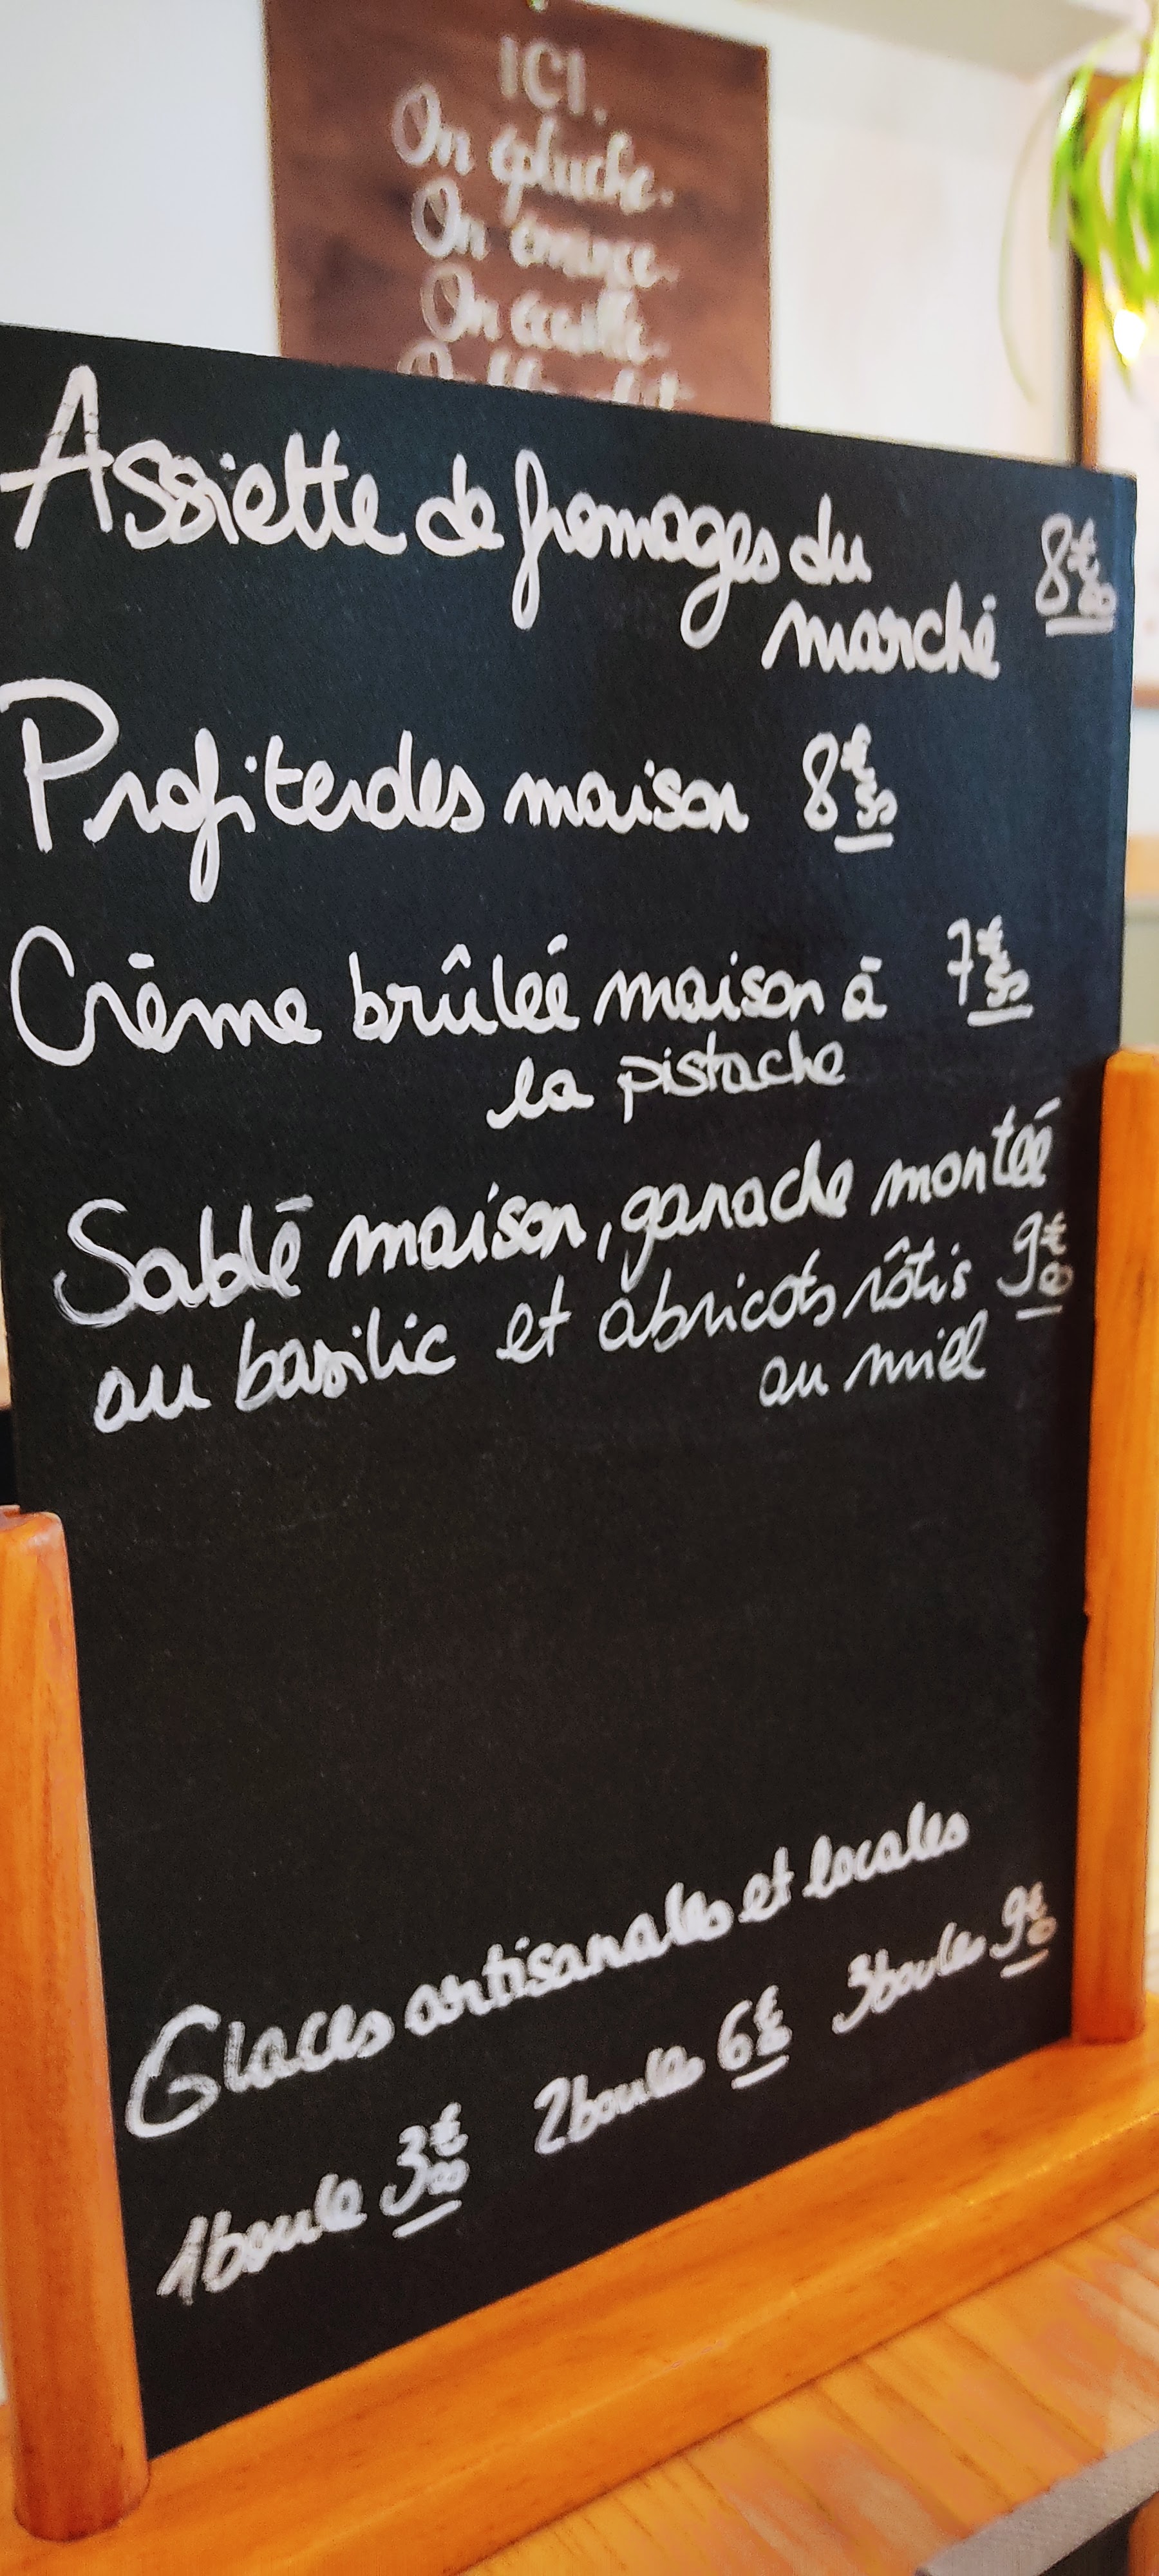 ICI.
On épluche.
On émince.
On écaille.
Assiette de fromages du
marché 8€00
Profiteroles maison 8€50
Crème brûlée maison à 7€50
la pistache
Sablé maison, ganache montée
au basilic et abricots rôtis 9€00
au miel
Glaces artisanales et locales
1boule 3€00 2boules 6€00 3boules 9€00